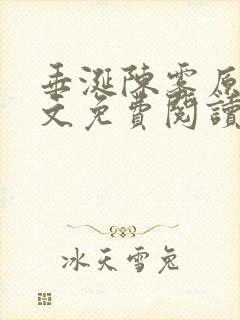 垂涎陳雾原
文免費閱讀
冰天雪兔